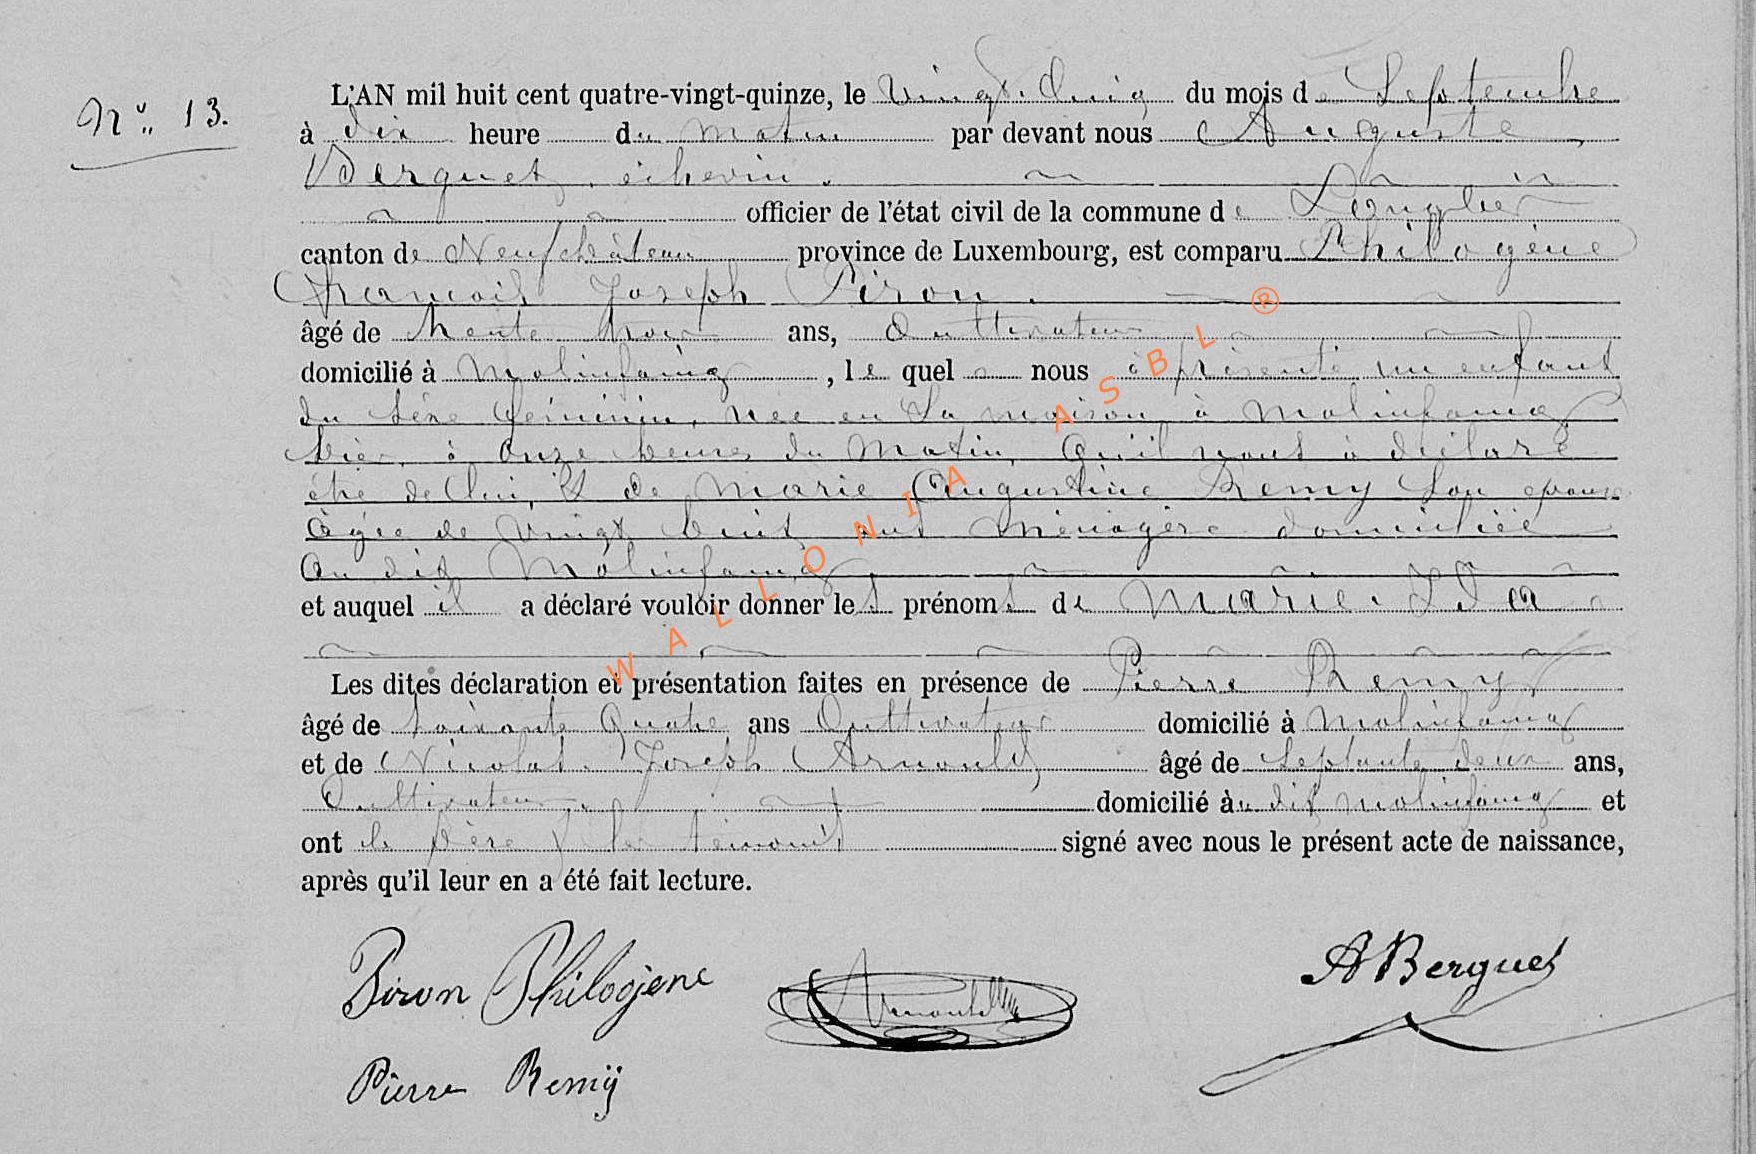 N° 13.
L'AN mil huit cent quatre-vingt-quinze, le Vingt Cinq du mois de Septembre
à dix heure du matin par devant nous Auguste
Berquet, échevin.
officier de l'état civil de la commune de Longlier
canton de Neufchâteau province de Luxembourg, est comparu Philogène
François Joseph Piron.
âgé de trente trois ans, Cultivateur
domicilié à Molinfaing, le quel nous à présenté un enfant
du sèxe féminin, née en sa maison à Molinfaing
hier, à Onze heures du Matin, Qu'il nous à déclaré
être de lui, & de Marie Augustine Remy son épouse
Agée de Vingt huit ans Ménagère domiciliée
Au dit Molinfaing
et auquel il a déclaré vouloir donner les prénoms de Marie. Ida
Les dites déclaration et présentation faites en présence de Pierre Remy
âgé de soixante Quatre ans Cultivateur domicilié à Molinfaing
et de Nicolas. Joseph Arnould âgé de septante deux ans,
Cultivateur, domicilié àu dit Molinfaing et
ont le père & les témoins signé avec nous le présent acte de naissance,
après qu'il leur en a été fait lecture.
Piron Philogène
Arnould
A Berquet
Pierre Remÿ
WALLONIA ASBL ®